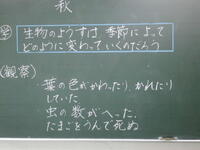 秋
学 生物のようすは 季節によって
どのように変わっていくのだろう
(観察)
葉の色がかわったり、かれたり
していた
虫の数がへった。
たまごをうんで死ぬ